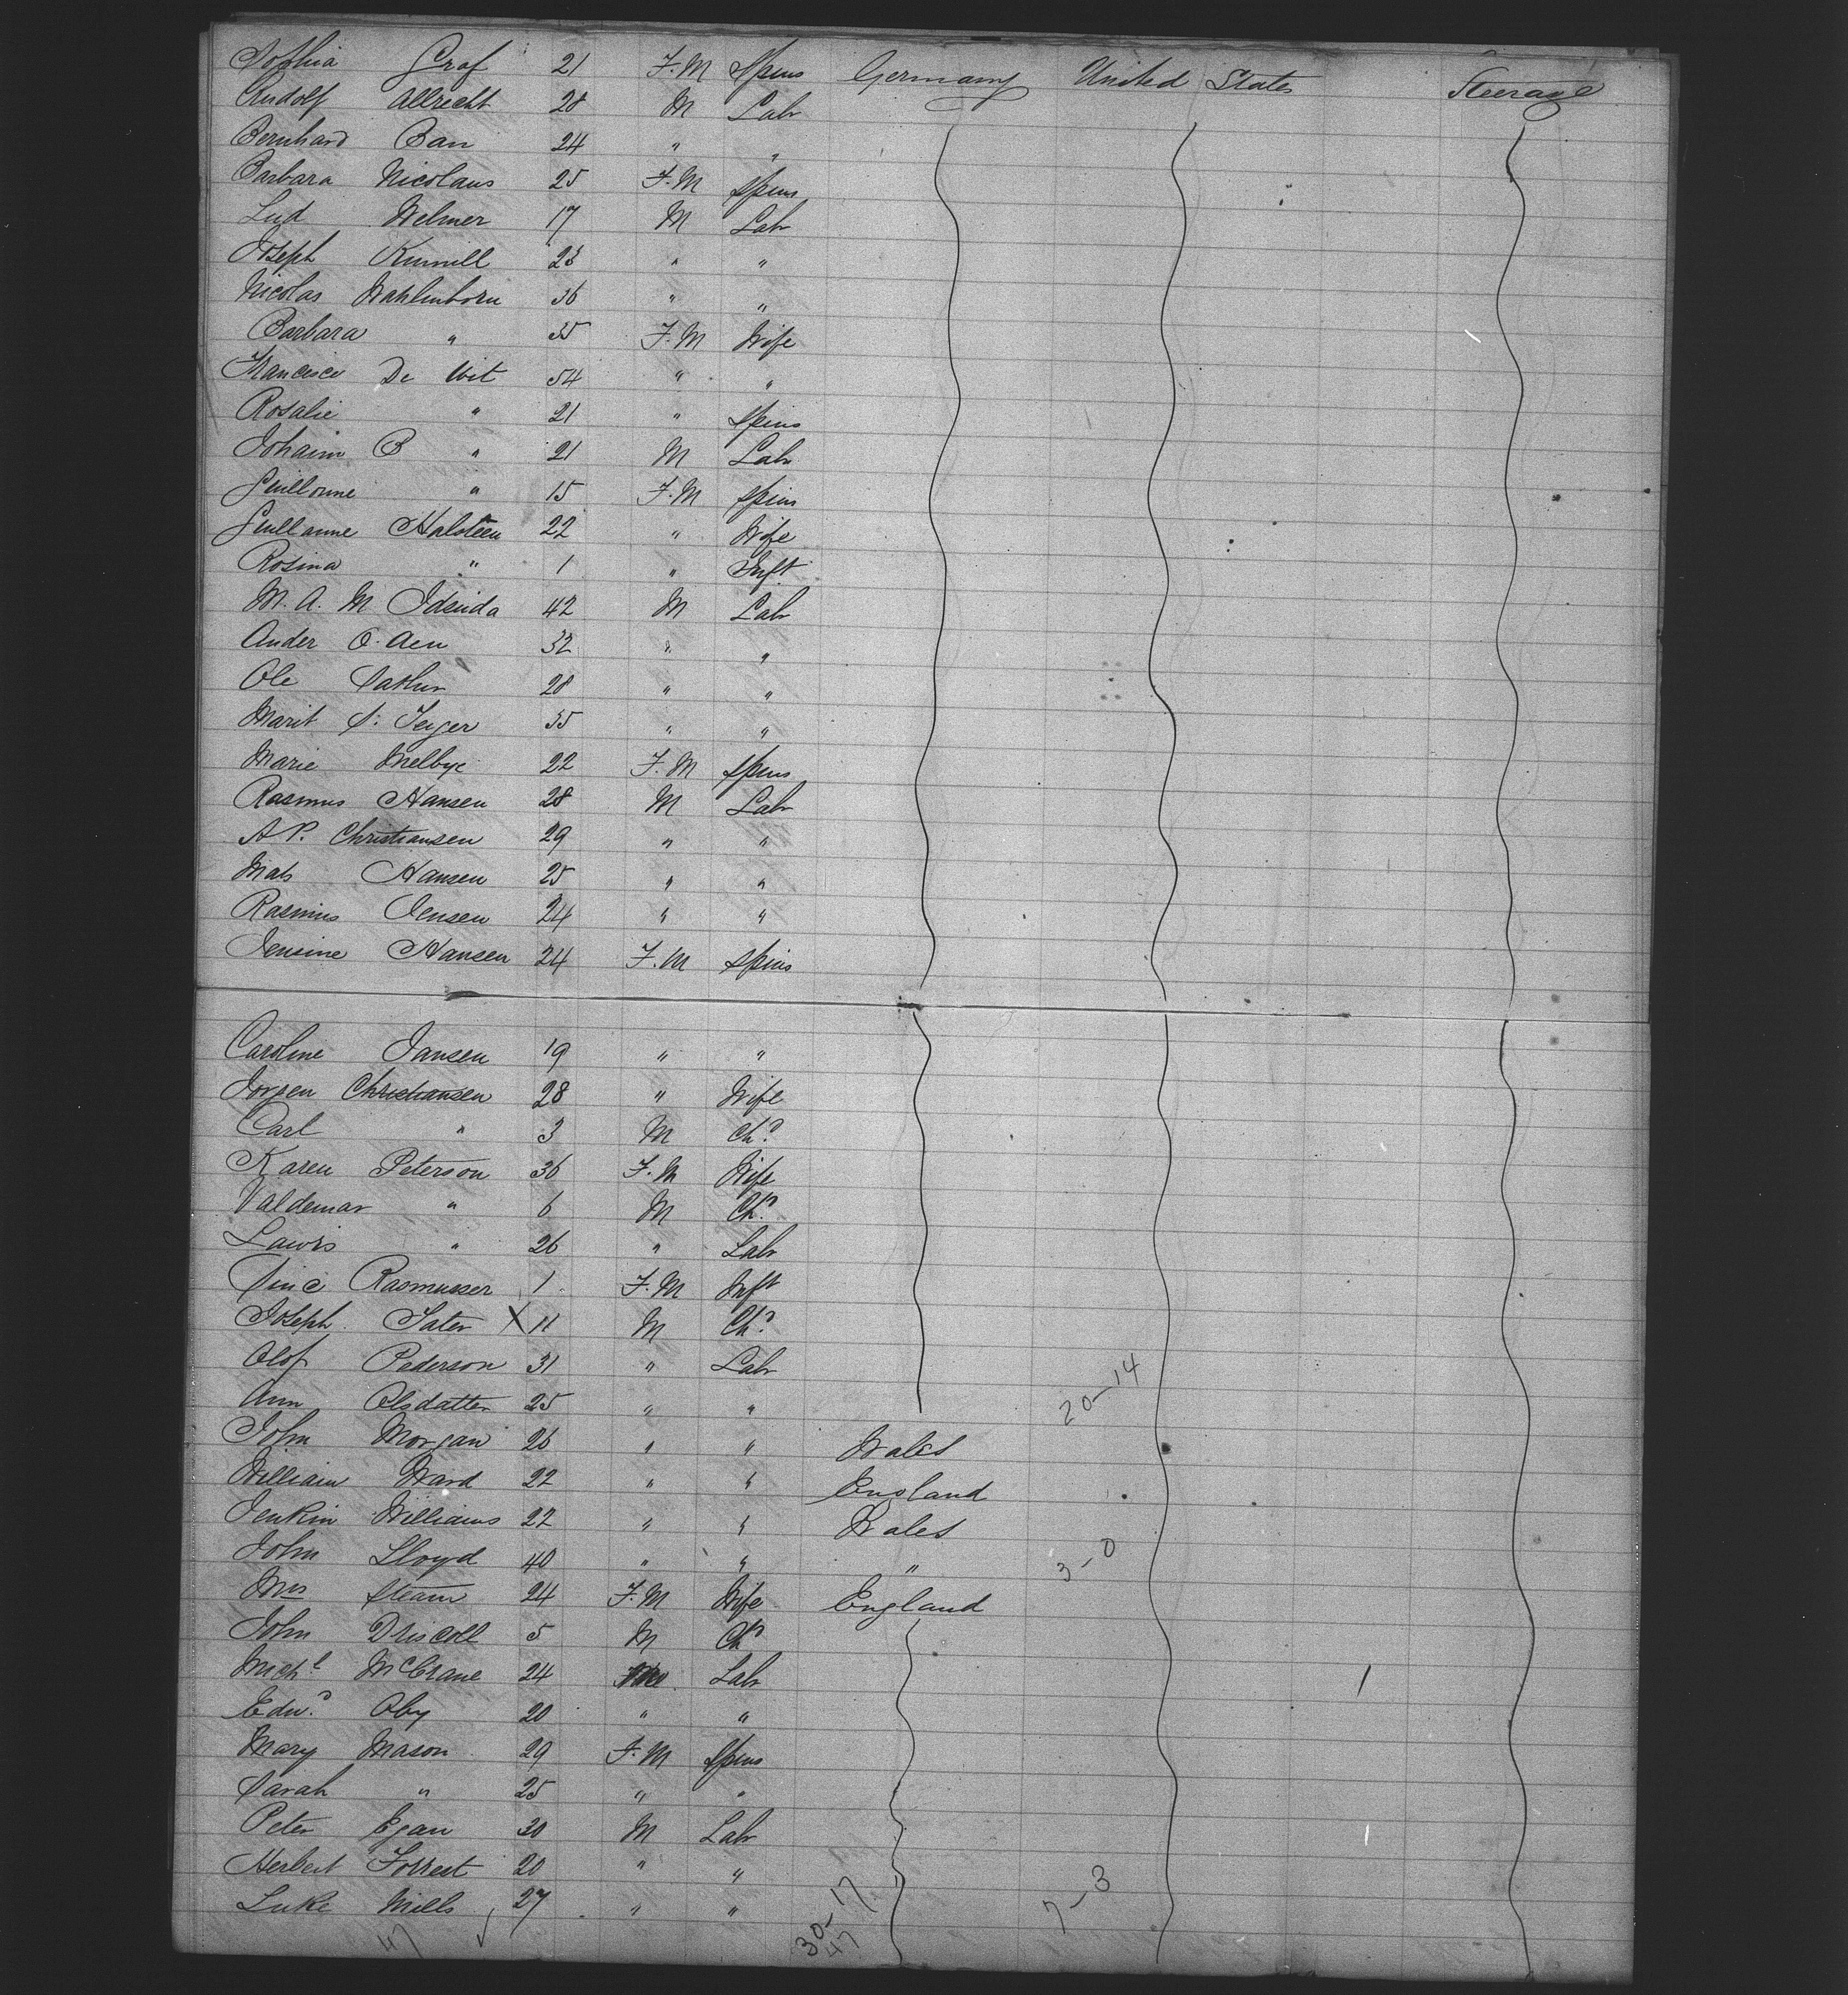 Sophia Graf 21 F.M Spins Germany United States Steerage
Rudolf Albrecht 28 M Labr
Bernhard Ban 24 " "
Barbara Nicolaus 25 F.M Spins
Lud Welmer 17 M Labr
Joseph Kumill 23 " "
Nicolas Wahlenborn 36 " "
Barbara " 35 F.M Wife
Francisco De Wit 54 " "
Rosalie " 21 " Spins
Johann B " 21 M Labr
Guillonne " 15 F.M Spins
Guillaume Halsteen 22 " Wife
Rosina " 1 " Inft
M. A. M Idsinda 42 M Labr
Ander O. Aen 32 " "
Ole 28 " "
Marit S. Teiger 35 " "
Marie Melbye 22 F.M Spins
Rasmus Hansen 28 M Labr
A P. Christiansen 29 " "
Mats Hansen 25 " "
Rasmus Jensen 24 " "
Jensine Hansen 24 F.M Spins
Caroline Jansen 19 " "
Jorgen Christiansen 28 " Wife
Carl " 3 M Chd
Karen Peterson 36 F.M Wife
Valdemar " 6 M Chd
Lawrs " 26 " Labr
Sine Rasmusser 1 F.M Inft
Joseph Sater X 11 M Chd
Olof Pederson 31 " Labr
Ann Olsdatter 25 " " 20-14
John Morgan 26 " " Wales
William Ward 22 " " England
Jenkin Williams 22 " " Wales
John Lloyd 40 " " " 3-0
Mrs Steam 24 F.M Wife England
John Driscoll 5 M Chd
Michl McCrane 24 Labr
Edwd Oby 20 " "
Mary Mason 29 F.M Spins
Sarah " 25 " "
Peter Egan 30 M Labr
Herbert Forrest 20 " "
Luke Mills 27 " " 30-17 7-3
47 47